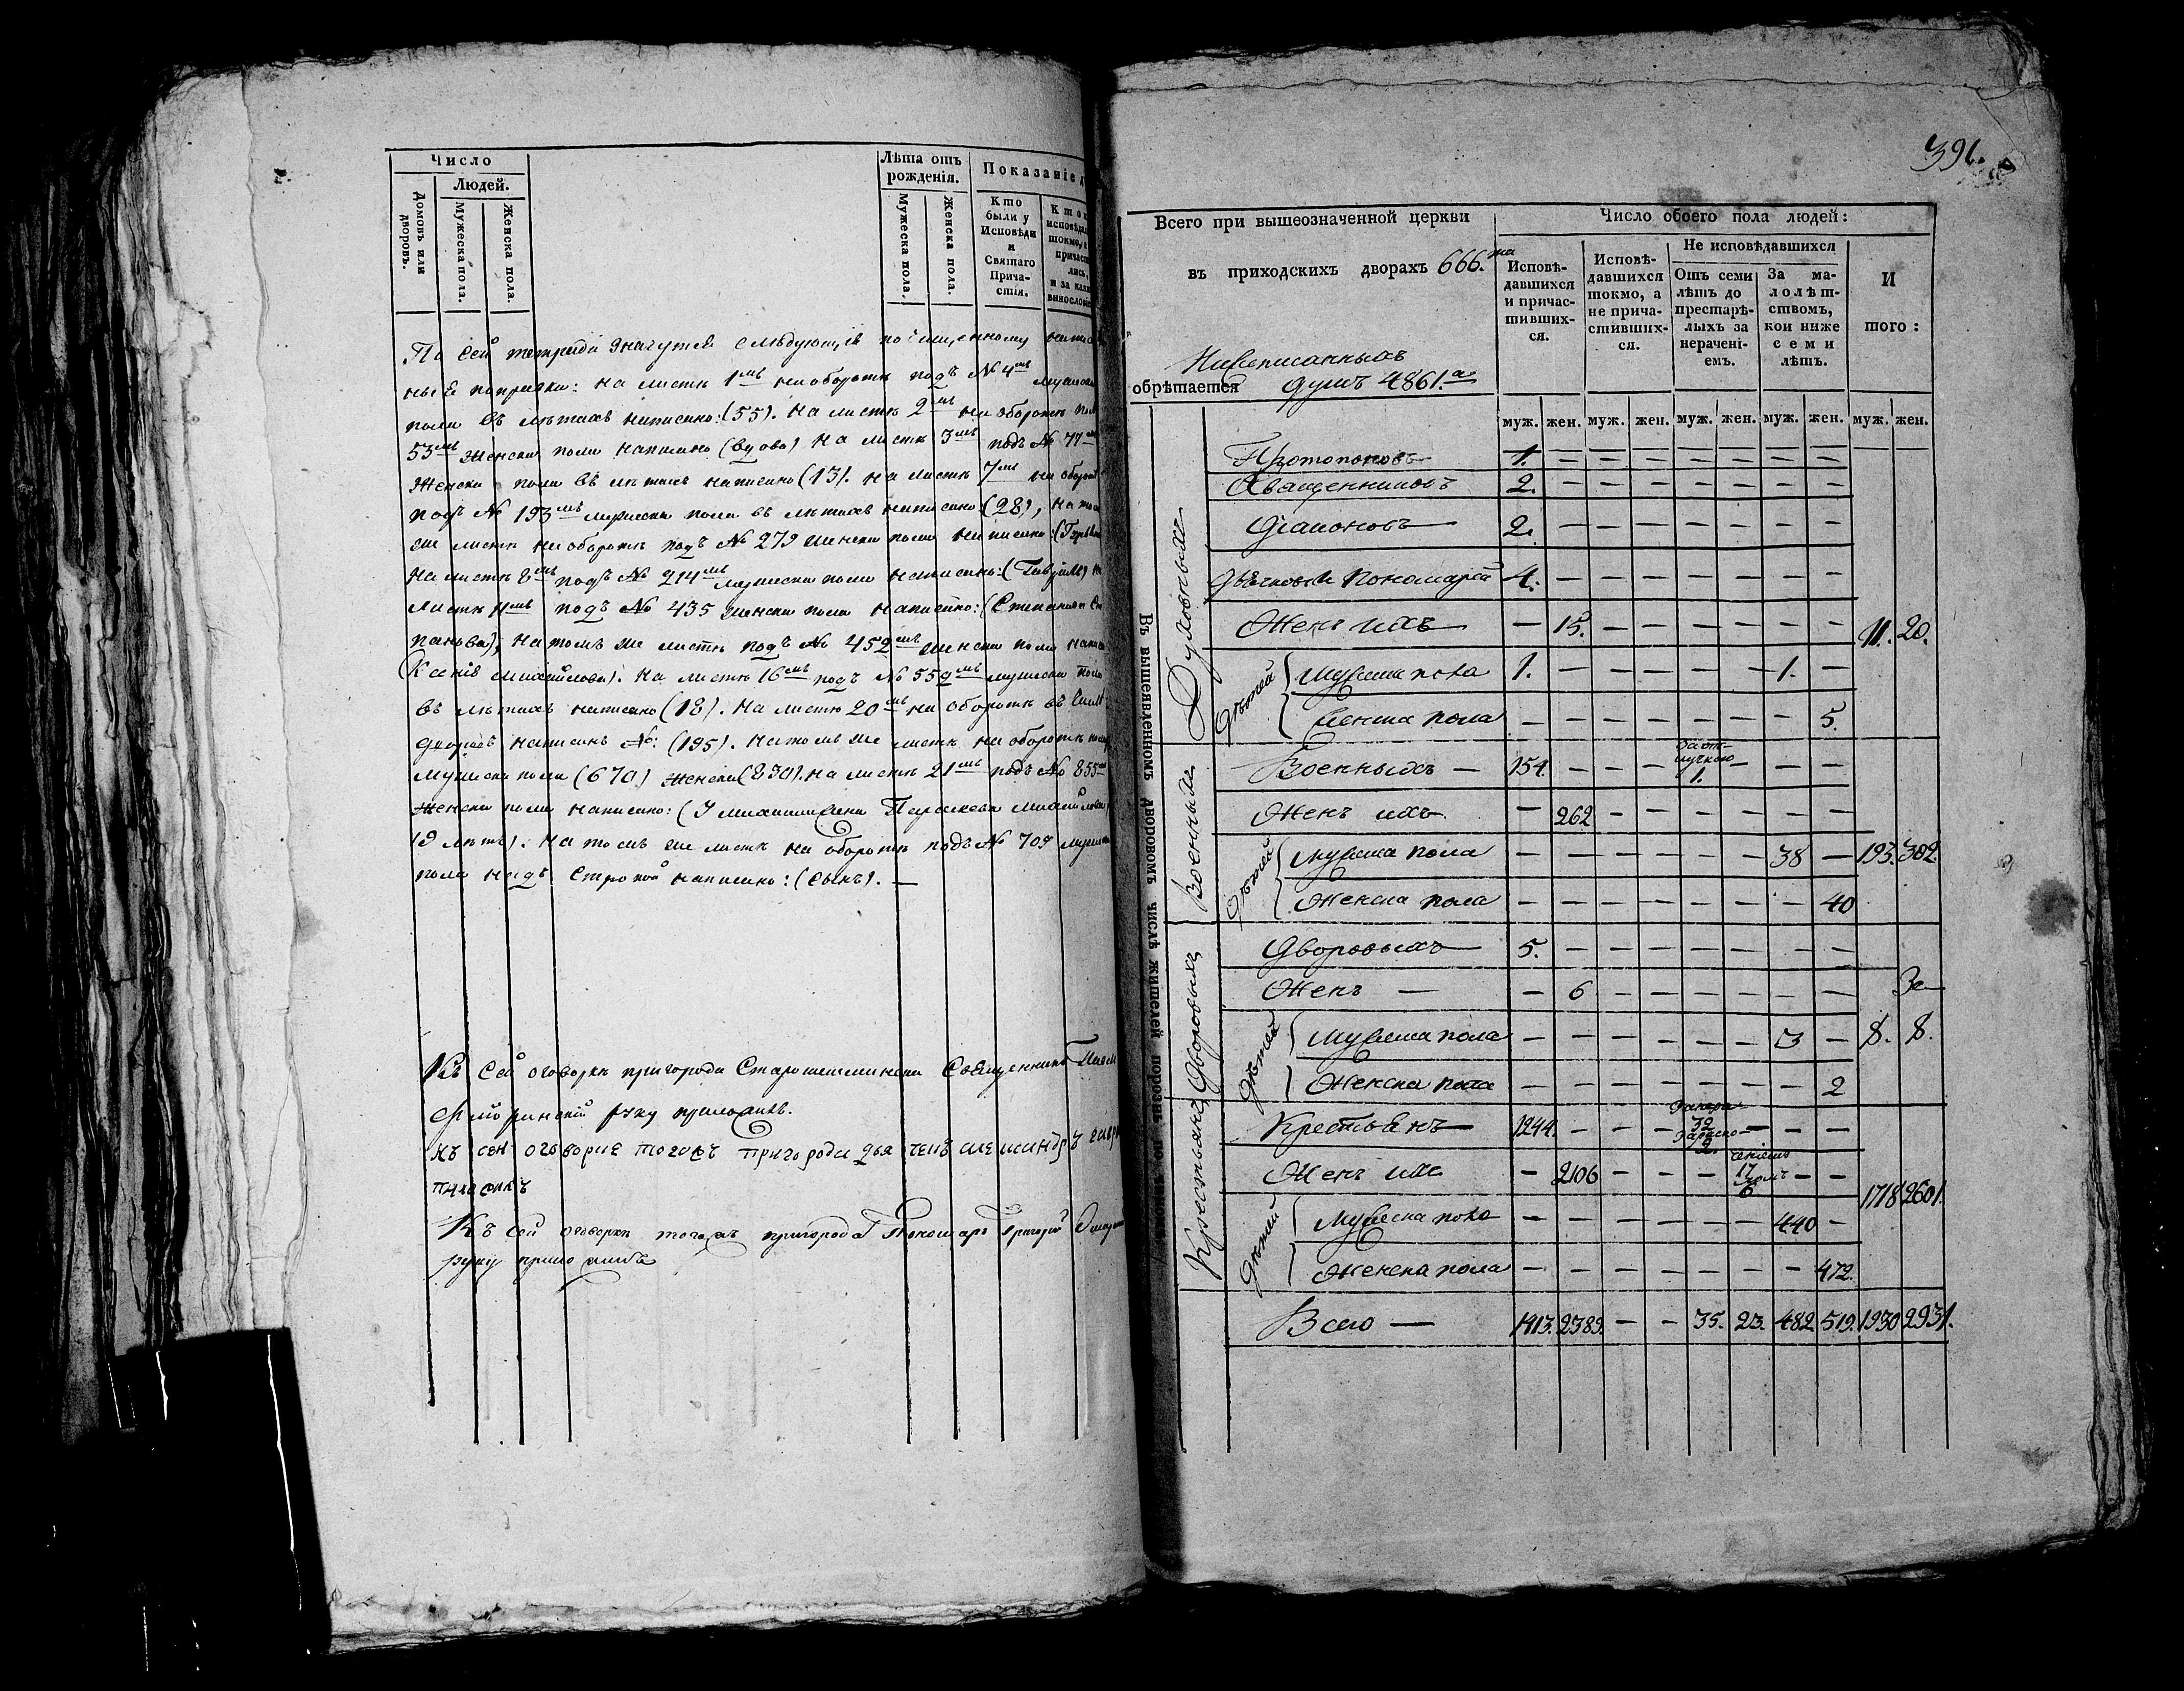 Число
Людей.
Домовъ или дворовъ.
Мужеска пола.
Женска пола.
Лѣта отъ рожденія.
Мужеска пола.
Женска пола.
Показаніе
Кто были у Исповѣди и Святаго Причастія.
По сей тетради значутся слѣдующія по
ныя поправки: на листѣ 1мъ на оборотѣ подъ № 4мъ мужска
пола въ лѣтахъ написано: (55). На листѣ 2мъ на оборотѣ
53мъ женска пола написано (вдова) На листѣ 3мъ подъ № 77
Женска пола въ лѣтахъ написано (13). на листѣ 7мъ на оборотѣ
подъ № 193мъ мужеска пола въ лѣтахъ написано (28), на томъ
же листѣ на оборотѣ подъ № 279 женска пола написано:
На листѣ 8мъ подъ № 214мъ мужеска пола написано: (Гаврiилъ)
листѣ подъ № 435 женска пола написано: (Степанида Сте
панова), на томъ же листѣ подъ № 452мъ женска пола написано
(Ксенія Михайлова). На листѣ 16мъ подъ № 559мъ мужеска пола
въ лѣтахъ написано (18). На листѣ 20мъ на оборотѣ въ числѣ
дворовъ написанъ №: (195). На томъ же листѣ на оборотѣ
мужеска пола (670) женска (830). На листѣ 21мъ подъ № 855мъ
женска пола написано: (У Параскева Михайлова
19 лѣтъ). На томъ же листѣ на оборотѣ подъ № 709 мужеска
пола надъ строкой написано: (сынъ). —
Къ сей оговоркѣ пригорода Старошешминска Священникъ
руку приложилъ.
къ сей оговоркѣ тогожъ пригорода дьяченъ александръ
Къ сей оговорки тогожъ пригорода Пономарь Григорій
руку приложилъ
391.
Всего при вышеозначенной церкви
въ приходскихъ дворахъ 666.
Нижеписанныхъ
обрѣтается душъ 4861.а
Число обоего пола людей:
Исповѣдавшихся и причастившихся.
Исповѣдавшихся токмо, а не причастившихся.
Не исповѣдавшихся
Отъ семи лѣтъ до престарѣлыхъ за нераченіемъ.
За малолѣтствомъ, кои ниже семи лѣтъ.
И того:
муж. жен. муж. жен. муж. жен. муж. жен. муж. жен.
Въ вышеявленномъ дворовомъ числѣ жителей порознь по чиномъ:
Духовныхъ
Протопоповъ 1. — — — — — — —
Священниковъ 2. — — — — — — —
Діаконовъ 2. — — — — — — —
Дьячковъ и Пономарей 4. — — — — — — —
Женъ ихъ — 15. — — — — — — 11. 20.
Дѣтей
Мужеска пола 1. — — — — — 1. —
Женска пола — — — — — — — 5.
Военныхъ
Военныхъ — 154. — — — За отлучкою 1. — — —
Женъ ихъ — 262 — — — — — —
Дѣтей
Мужеска пола — — — — — — 38 — 193. 302.
Женска пола — — — — — — — 40
Дворовыхъ
Дворовыхъ 5. — — — — — — —
Женъ — — 6 — — — — — —
Дѣтей
Мужеска пола — — — — — — 3 — 8. 8.
Женска пола — — — — — — — 2
Крестьянъ
Крестьянъ 1244. — — — 32 2 — — —
Женъ ихъ — 2106 — — — 17 6 — — 1718 2601.
Дѣтей
Мужеска пола — — — — — — 440 —
Женска пола — — — — — — — 472.
Всего — 1413. 2389. — — 35. 23. 482 519. 1930 2931.